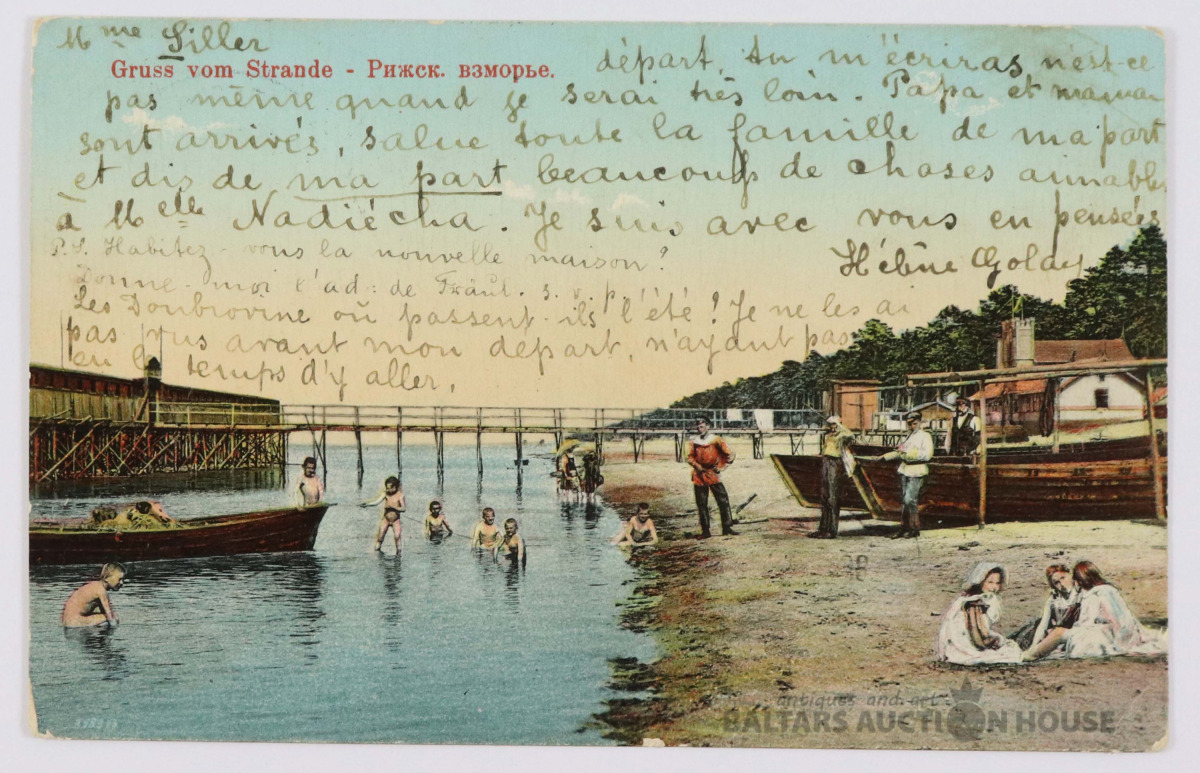 Mme Siller
Gruss vom Strande - Рижск. взморье.
départ, tu m'écriras n'est-ce
pas même quand je serai très loin. Papa et maman
sont arrivés, salue toute la famille de ma part
et dis de ma part beaucoup de choses aimables
à Melle Nadiécha. Je suis avec vous en pensées
Hélène Golay
P.S. Habitez-vous la nouvelle maison?
Donne-moi l'ad: de Fräul. s. v. p.
Les Doubrovine où passent-ils l'été! Je ne les ai
pas vus avant mon départ, n'ayant pas
eu le temps d'y aller.
antiques and art
BALTARS AUCTION HOUSE